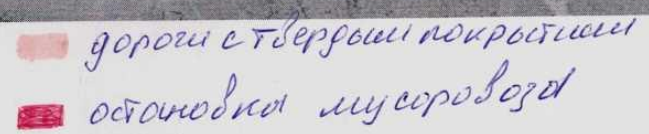 дороги с твердым покрытием
остановка мусоровоза